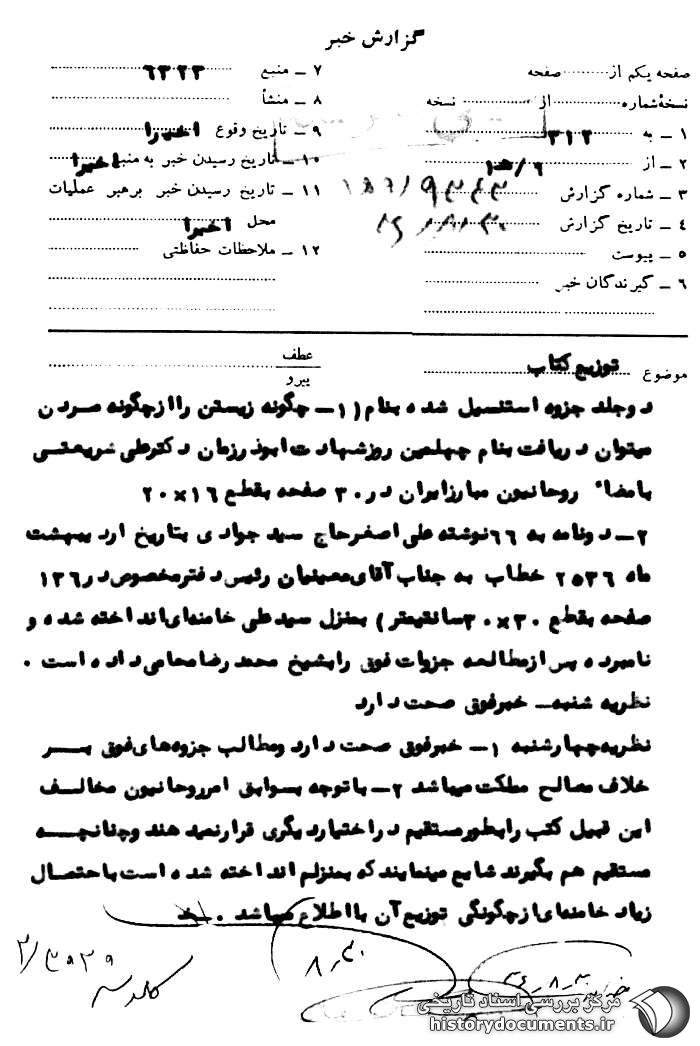 گزارش خبر
صفحه یکم از ........ صفحه
نسخهٔ شماره ........ از ........ نسخه
۱ ـ به ۳۱۲
۲ ـ از ۶/ﻫ۱
۳ ـ شماره گزارش
۴ ـ تاریخ گزارش
۵ ـ پیوست
۶ ـ گیرندگان خبر
۷ ـ منبع ۶۳۲۳
۸ ـ منشأ
۹ ـ تاریخ وقوع اخیرا
۱۰ ـ تاریخ رسیدن خبر به منبع اخیرا
۱۱ ـ تاریخ رسیدن خبر برهبر عملیات
محل اخیرا
۱۲ ـ ملاحظات حفاظتی
موضوع توزیع کتاب
عطف
پیرو
دوجلد جزوه استنسیل شده بنام (۱ـ چگونه زیستن را ازچگونه مردن
میتوان دریافت بنام چهلمین روزشهادت ابوذرزمان دکترعلی شریعتی
بامضاء روحانیون مبارزایران در۳۰ صفحه بقطع ۱۶×۲۰
۲ـ دونامه به ۶۶نوشته علی اصغرحاج سید جوادی بتاریخ اردیبهشت
ماه ۲۵۳۶ خطاب به جناب آقای معینیان رئیس دفترمخصوص در۱۳۶
صفحه بقطع ۳۰×۲۰سانتیمتر) بمنزل سیدعلی خامنه‌ای انداخته شده و
نامبرده پس ازمطالعه جزوات فوق رابشیخ محمد رضا محامی داده است .
نظریه شنبه ـ خبرفوق صحت دارد
نظریه چهارشنبه ۱ـ خبرفوق صحت دارد ومطالب جزوه‌های فوق بـر
خلاف مصالح مملکت میباشد ۲ـ باتوجه بسوابق امرروحانیون مخالف
این قبیل کتب رابطورمستقیم دراختیاردیگری قرارنمیدهند وچنانچه
مستقیم هم بگیرند شایع مینمایند که بمنزلم انداخته شده است باحتمال
زیاد خامنه‌ای ازچگونگی توزیع آن بااطلاع میباشد .
۸ـ۳۰
۳۶ـ۸ـ۳۰
مرکز بررسی اسناد تاریخی
historydocuments.ir